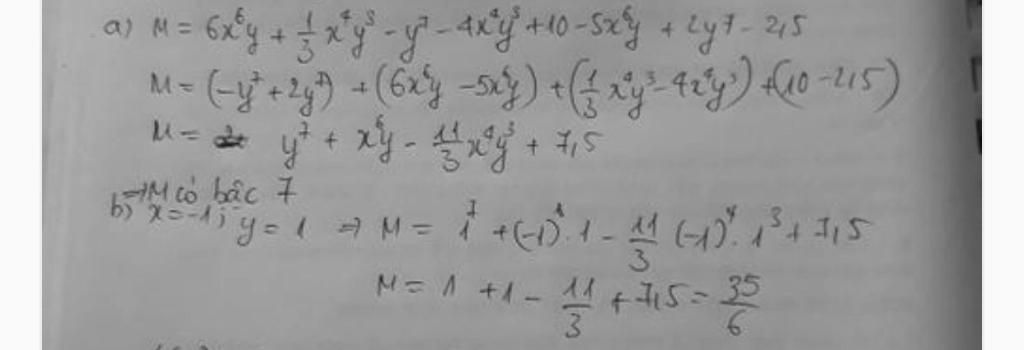 a) M = 6x⁶y + 1/3 x⁴y³ - y⁷ - 4x⁴y³ + 10 - 5x⁶y + 2y7 - 2,5
M = (-y⁷ + 2y⁷) + (6x⁶y - 5x⁶y) + (1/3 x⁴y³ - 4x⁴y³) + (10 - 2,5)
M = y⁷ + x⁶y - 11/3 x⁴y³ + 7,5
⇒ M có bậc 7
b) x = -1; y = 1 ⇒ M = 1⁷ + (-1)⁶.1 - 11/3 (-1)⁴.1³ + 7,5
M = 1 + 1 - 11/3 + 7,5 = 35/6